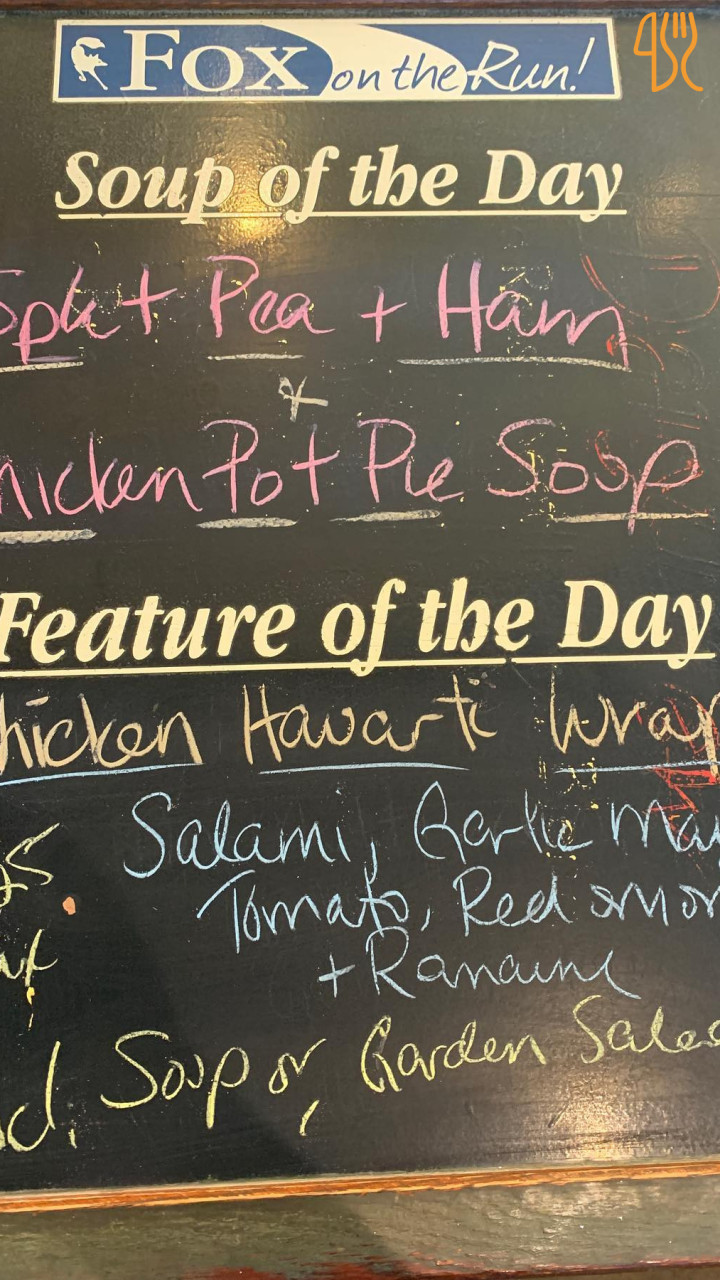 Fox on the Run!
Soup of the Day
Split Pea + Ham
+
hicken Pot Pie Soup
Feature of the Day
hicken Havarti Wrap
Salami, Garlic Ma
Tomato, Red onion
+ Romaine
d, Soup or Garden Salad